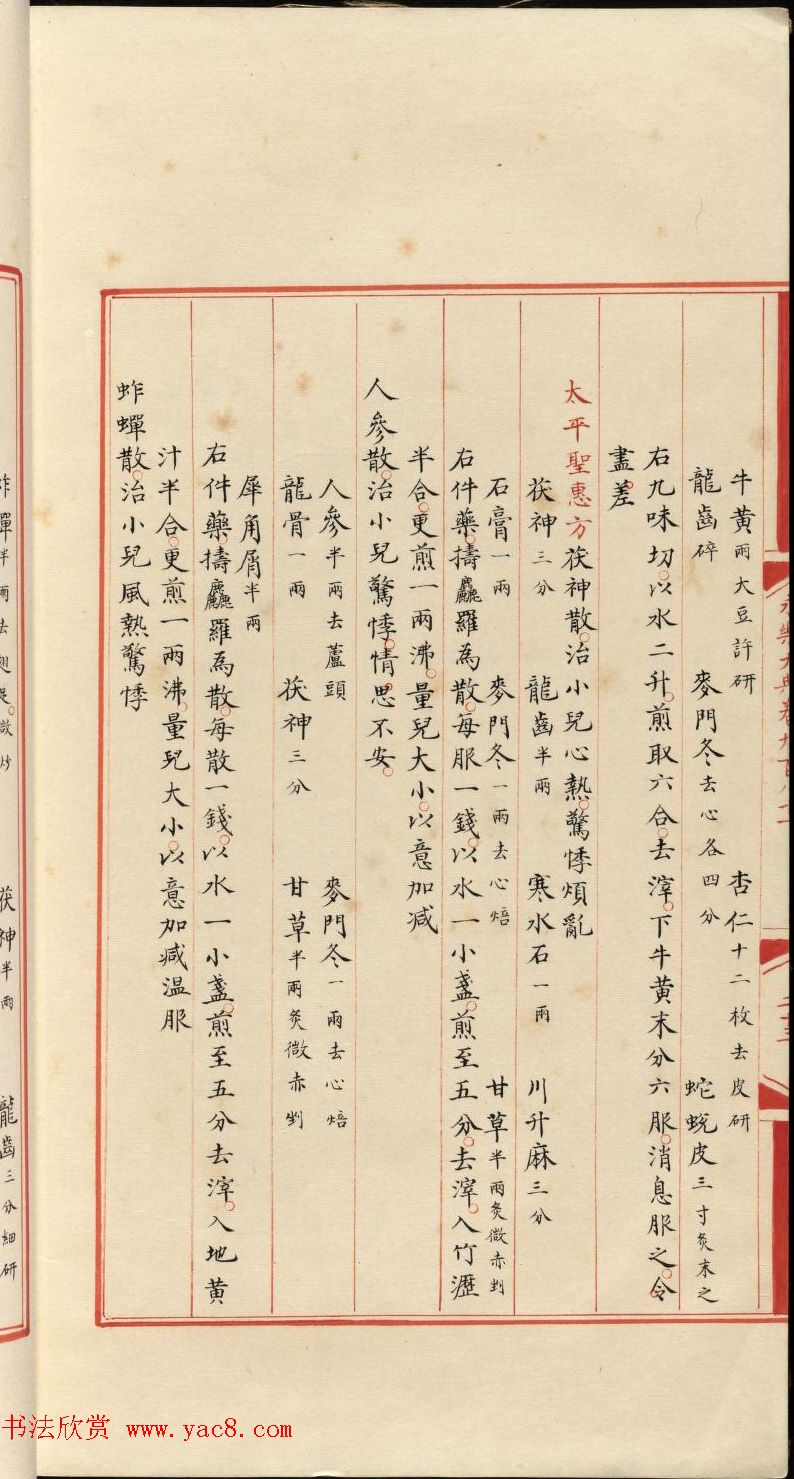 永樂大典卷九百八二
牛黃兩大豆許研 杏仁十二枚去皮研
龍齒碎 麥門冬去心各四分 蛇蛻皮三寸炙末之
右九味切。以水二升。煎取六合。去滓。下牛黃末分六服。消息服之。令
盡。差。
太平聖惠方茯神散。治小兒心熱。驚悸煩亂
茯神三分 龍齒半兩 寒水石一兩 川升麻三分
石膏一兩 麥門冬一兩去心焙 甘草半兩炙微赤剉
右件藥。擣麤羅為散。每服一錢。以水一小盞。煎至五分。去滓。入竹瀝
半合。更煎一兩沸。量兒大小。以意加減
人參散。治小兒驚悸。情思不安。
人參半兩去蘆頭 麥門冬一兩去心焙
龍骨一兩 茯神三分 甘草半兩炙微赤剉
犀角屑半兩
右件藥。擣麤羅為散。每散一錢。以水一小盞。煎至五分去滓。入地黃
汁半合。更煎一兩沸。量兒大小。以意加減温服
蚱蟬散。治小兒風熱驚悸
蚱蟬半兩去翅足。微炒 茯神半兩 龍齒三分細研
书法欣赏 www.yac8.com